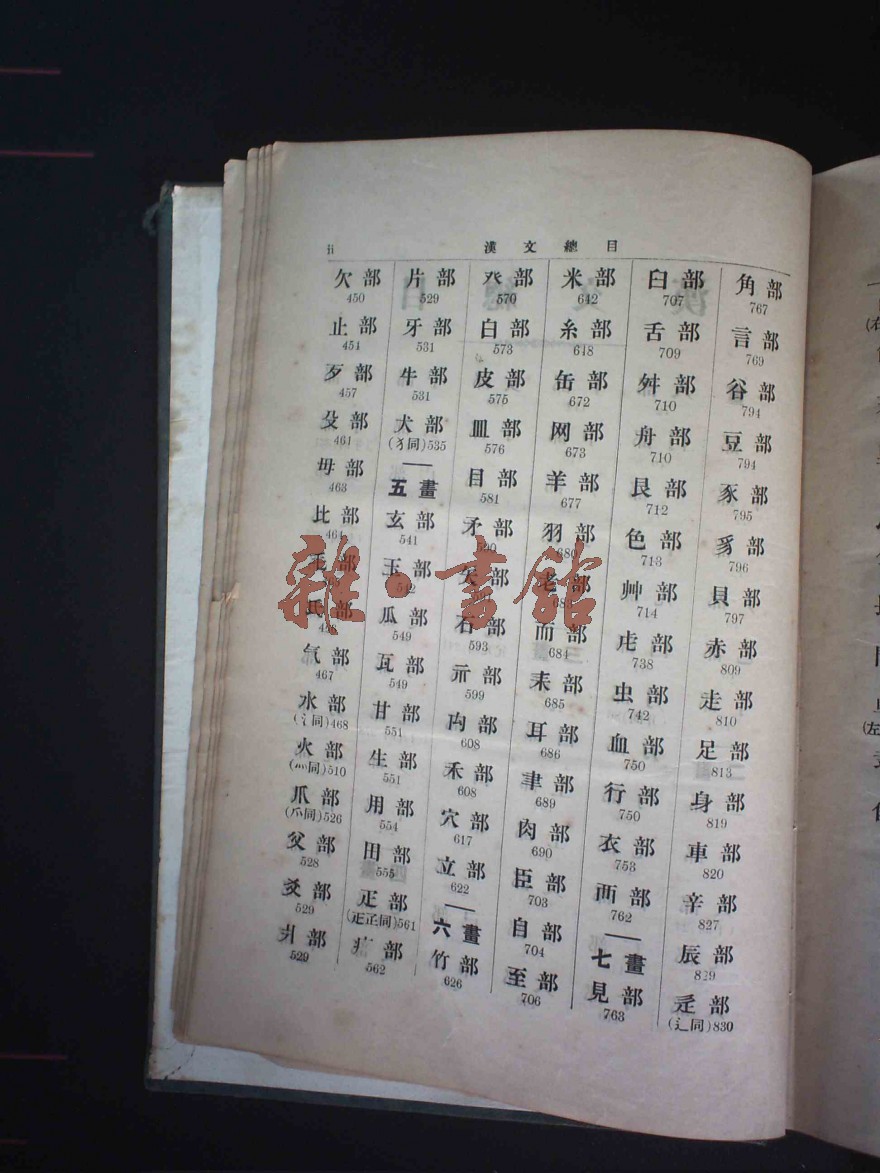 ii
漢文總目
欠部
450
止部
454
歹部
457
殳部
461
毋部
463
比部
464
毛部
氏部
气部
467
水部
(氵同)468
火部
(灬同)510
爪部
(爫同)526
父部
528
爻部
529
爿部
529
片部
529
牙部
531
牛部
531
犬部
(犭同)535
五畫
玄部
541
玉部
542
瓜部
549
瓦部
549
甘部
551
生部
551
用部
554
田部
555
疋部
561
疒部
562
癶部
570
白部
573
皮部
575
皿部
576
目部
581
矛部
590
矢部
石部
593
示部
599
禸部
608
禾部
608
穴部
617
立部
622
六畫
竹部
626
米部
642
糸部
648
缶部
672
网部
673
羊部
677
羽部
680
老部
683
而部
684
耒部
685
耳部
686
聿部
689
肉部
690
臣部
703
自部
704
至部
706
臼部
707
舌部
709
舛部
710
舟部
710
艮部
712
色部
713
艸部
714
虍部
738
虫部
742
血部
750
行部
750
衣部
753
襾部
762
七畫
見部
763
角部
767
言部
769
谷部
794
豆部
794
豕部
795
豸部
796
貝部
797
赤部
809
走部
810
足部
813
身部
819
車部
820
辛部
827
辰部
829
辵部
(辶同)830
雜·書館